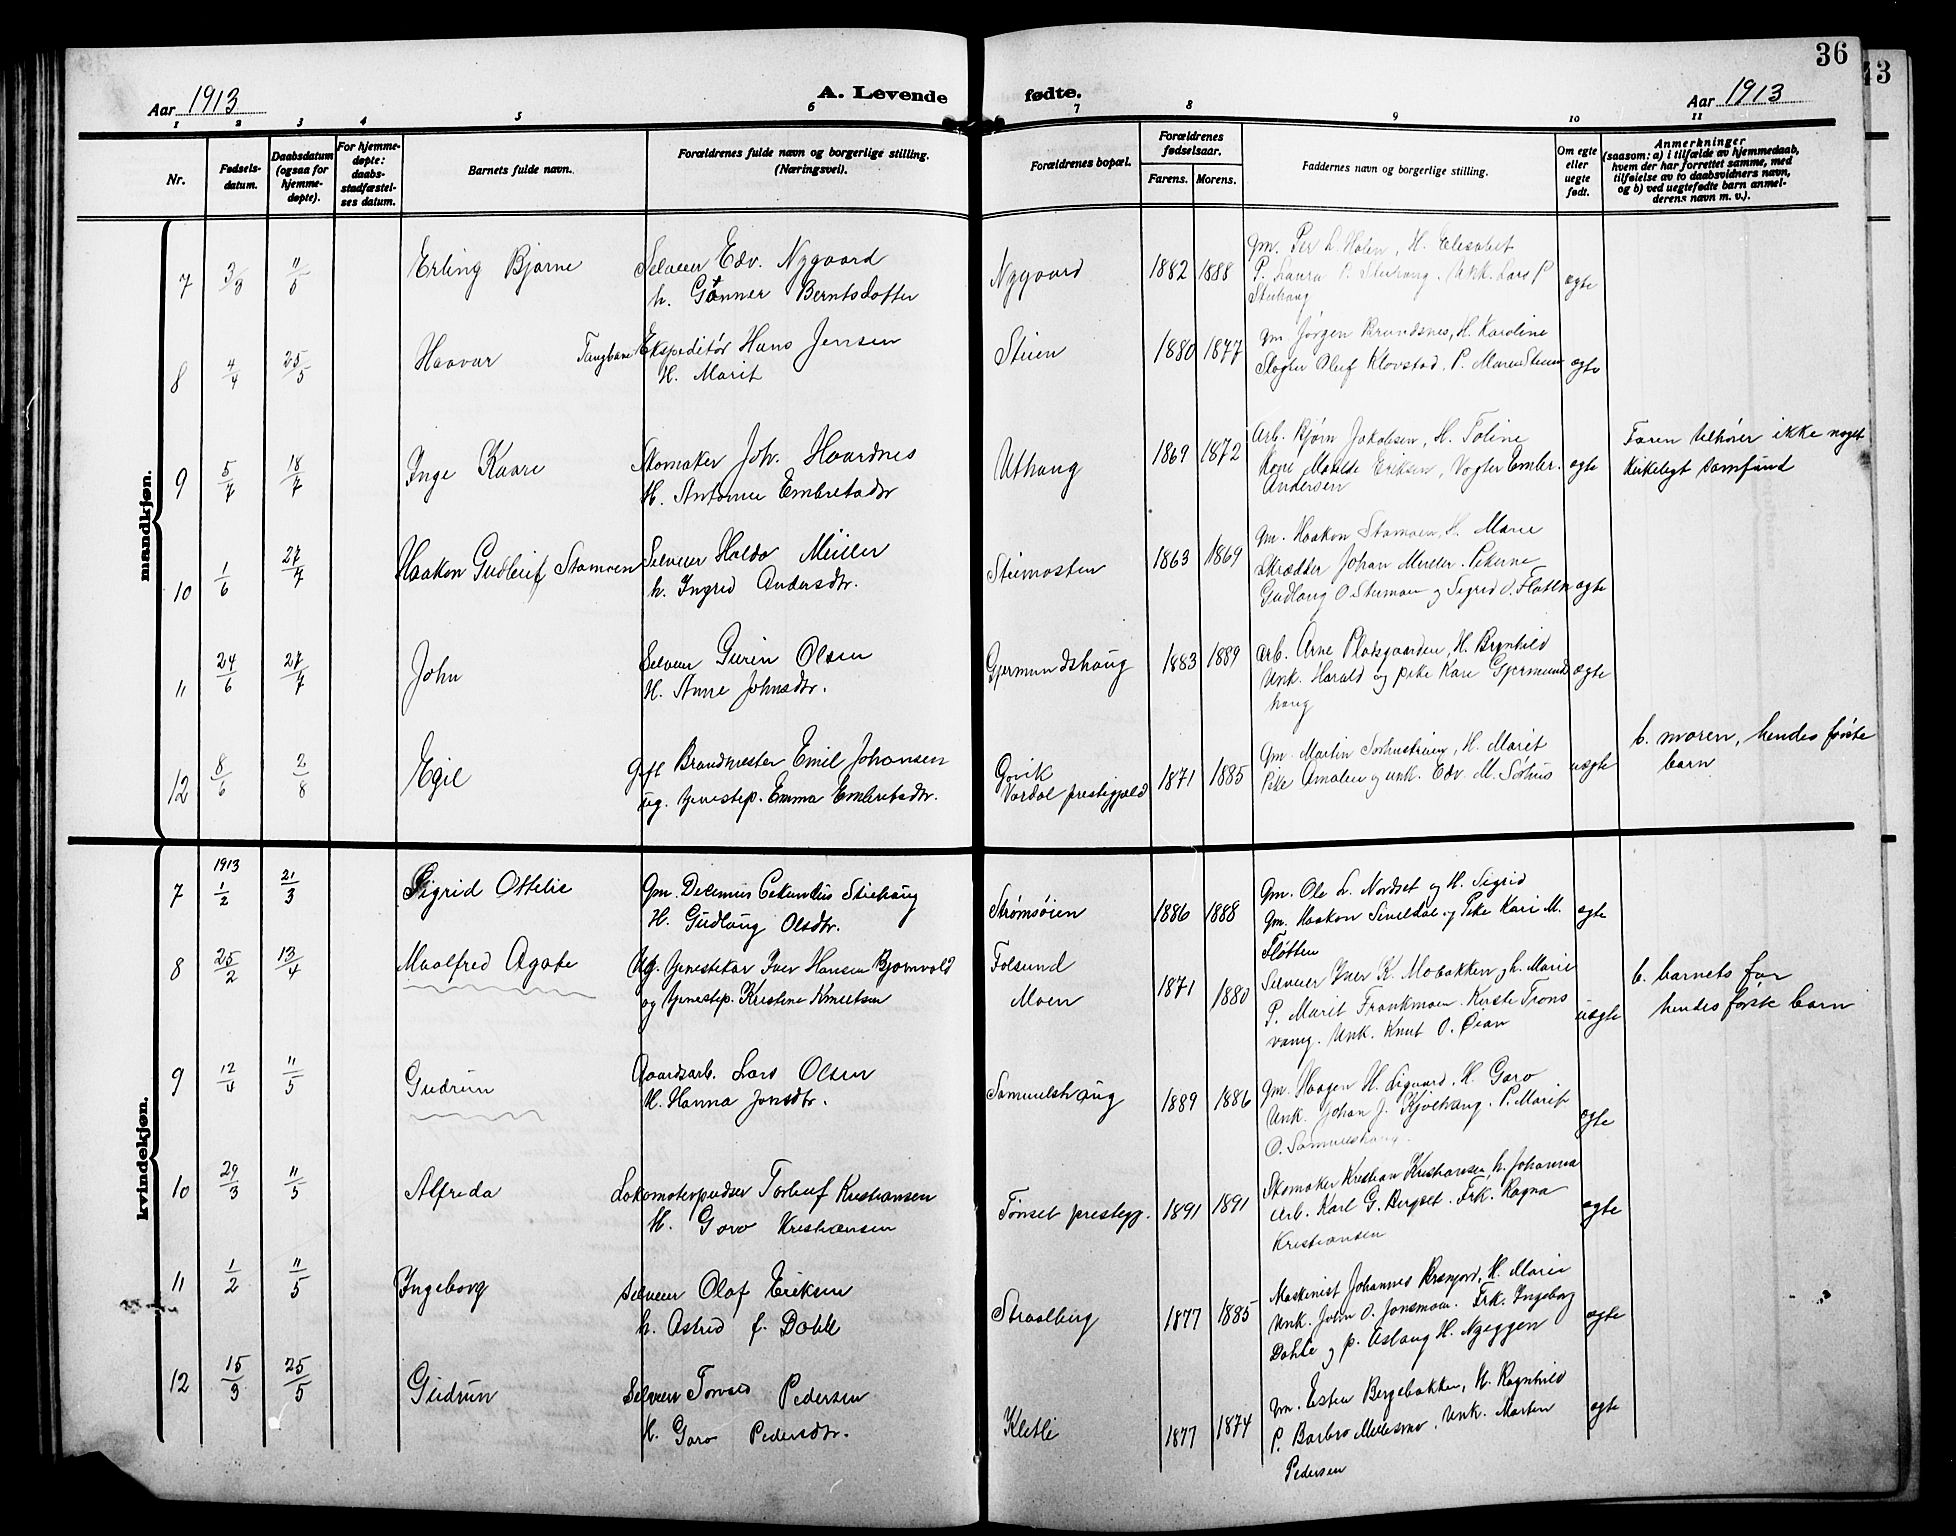 36
43
Aar 1913
A. Levende fødte.
Aar 1913
1 2 3 4 5 6 7 8 9 10 11
Nr.
Fødsels-
datum.
Daabsdatum
(ogsaa for
hjemme-
døpte).
For hjemme-
døpte:
daabs-
stadfæstel-
ses datum.
Barnets fulde navn.
Forældrenes fulde navn og borgerlige stilling.
(Næringsvei).
Forældrenes bopæl.
Forældrenes
fødselsaar.
Farens. Morens.
Faddernes navn og borgerlige stilling.
Om egte
eller
uegte
født.
Anmerkninger
(saasom: a) i tilfælde av hjemmedaab,
hvem der har forrettet samme, med
tilføielse av to daabsvidners navn,
og b) ved uegtefødte barn anmel-
derens navn m. v.).
mandkjøn.
7 3/8 11/5 Erling Bjarne
Selveier Edv. Nygaard
h. Gunner Berntsdatter
Nygaard 1882 1888
Gm. Per L. Holen, H. Elisabet
P. Laura P. Stuhaug. Unk. Lars P
Stuhaug
egte
8 4/4 25/5 Haavar
Tangbane Ekspeditør Hans Jensen
H. Marit
Stuen 1880 1877
Gm Jørgen Brundsnes, H. Karoline
Slagter Oluf Klovstad, P. Maren Stuen
egte
9 5/7 18/7 Inge Kaare
Skomaker Joh. Haardnes
H. Antonie Embretsdtr
Uthaug 1869 1872
Arb. Bjørn Jakobsen, H. Toline
Kone Matilde Eriksen, Vogter Embr.
Andersen
egte
Faren tilhører ikke noget
kirkeligt samfund
10 1/6 27/7 Haakon Gudleif Stamoen
Selveier Haldo Meiller
h. Ingrid Andersdtr.
Stumosten 1863 1869
Gm. Haakon Stamoen, H. Marie
Skrædder Johan Meiller. Pikerne
Gudlaug O Stumoen og Sigrid O. Flatten
egte
11 24/6 27/7 John
Selveier Gurin Olsen
H. Anne Johnsdtr.
Gjermundshaug 1883 1889
arb. Arne Pladsgaarden, H. Brynhild
Unk. Harald og pike Kari Gjermund
haug
egte
12 8/6 2/8 Egil
Gift Brandmester Emil Johansen
ug. tjenestep. Emma Embretsdtr.
Gjøvik
Vardal prestegjæld 1871 1885
Gm. Martin Sørhustuen, H. Marit
Pike Amalie og unk. Edv. M. Sørhus
uegte
b. moren, hendes første
barn
kvindekjøn.
7 1913 1/2 21/3 Sigrid Ottelie
Gm. Decimus Cekundus Stuhaug
H. Gudlaug Olsdtr.
Strømsøien 1886 1888
Gm. Ole L. Nordset og H. Sigrid
Gm. Haakon Siveldal og Pike Kari M.
Fløtten
egte
8 25/2 13/4 Maalfred Agate
Ug. tjenestekar Iver Hansen Bjørnvold
og tjenestep. Kristine Knutsen
Folsund
Moen 1871 1880
Selveier Iver K. Mobakken og h. Marie
P. Marit Frankmoen. Kirste Trons
vang. Unk. Knut O. Øian
uegte
b. barnets far
hendes første barn
9 12/4 11/5 Gudrun
Gaardsarb. Lars Olsen
H. Hanna Jonsdtr.
Samuelshaug 1889 1886
Gm. Haagen H. Ligaard, H. Goro
Unk. Johan J. Kjølhaug. P. Marit
O. Samuelshaug.
egte
10 29/3 11/5 Alfreda
Lokomotivpudser Torleif Kristiansen
H. Goro Kristiansen
Tønset prestegj. 1891 1891
Skomaker Kristian Kristiansen, h. Johanna
Arb. Karl G. Bergset. Frk. Ragna
Kristiansen
egte
11 1/2 11/5 Ingeborg
Selveier Olaf Eriksen
h. Astrid f. Dahle
Straalberg 1877 1885
Maskinist Johannes Brænjord, H. Marie
Unk. John O. Jonsmoen. Frk. Ingeborg
Dahle og p. Aslaug H. Nyeggen
egte
12 15/3 25/5 Gudrun
Selveier Tønses Pedersen
H. Goro Pedersdtr.
Kletli 1877 1874
Gm. Esten Bergebakken, H. Ragnhild
P. Barbro Mellesmo. Unk. Morten
Pedersen
egte